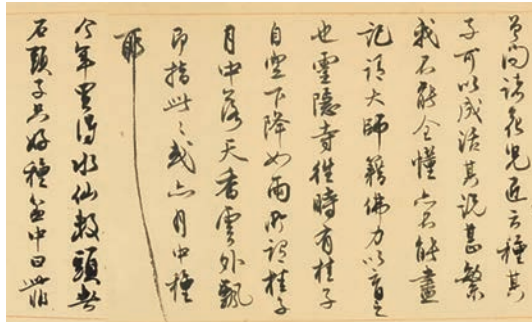 曾问諸花兒匠云種其
子可以成活其説甚繁
我不能全懂亦不能盡
記請大師籍佛力以育之
也靈隱寺往時有桂子
自空下降如雨所謂桂子
月中落天香雲外飄
即指此〻或亦月中種
耶
今年買得水仙數頭皆
石頭子只好種盆中曰此非